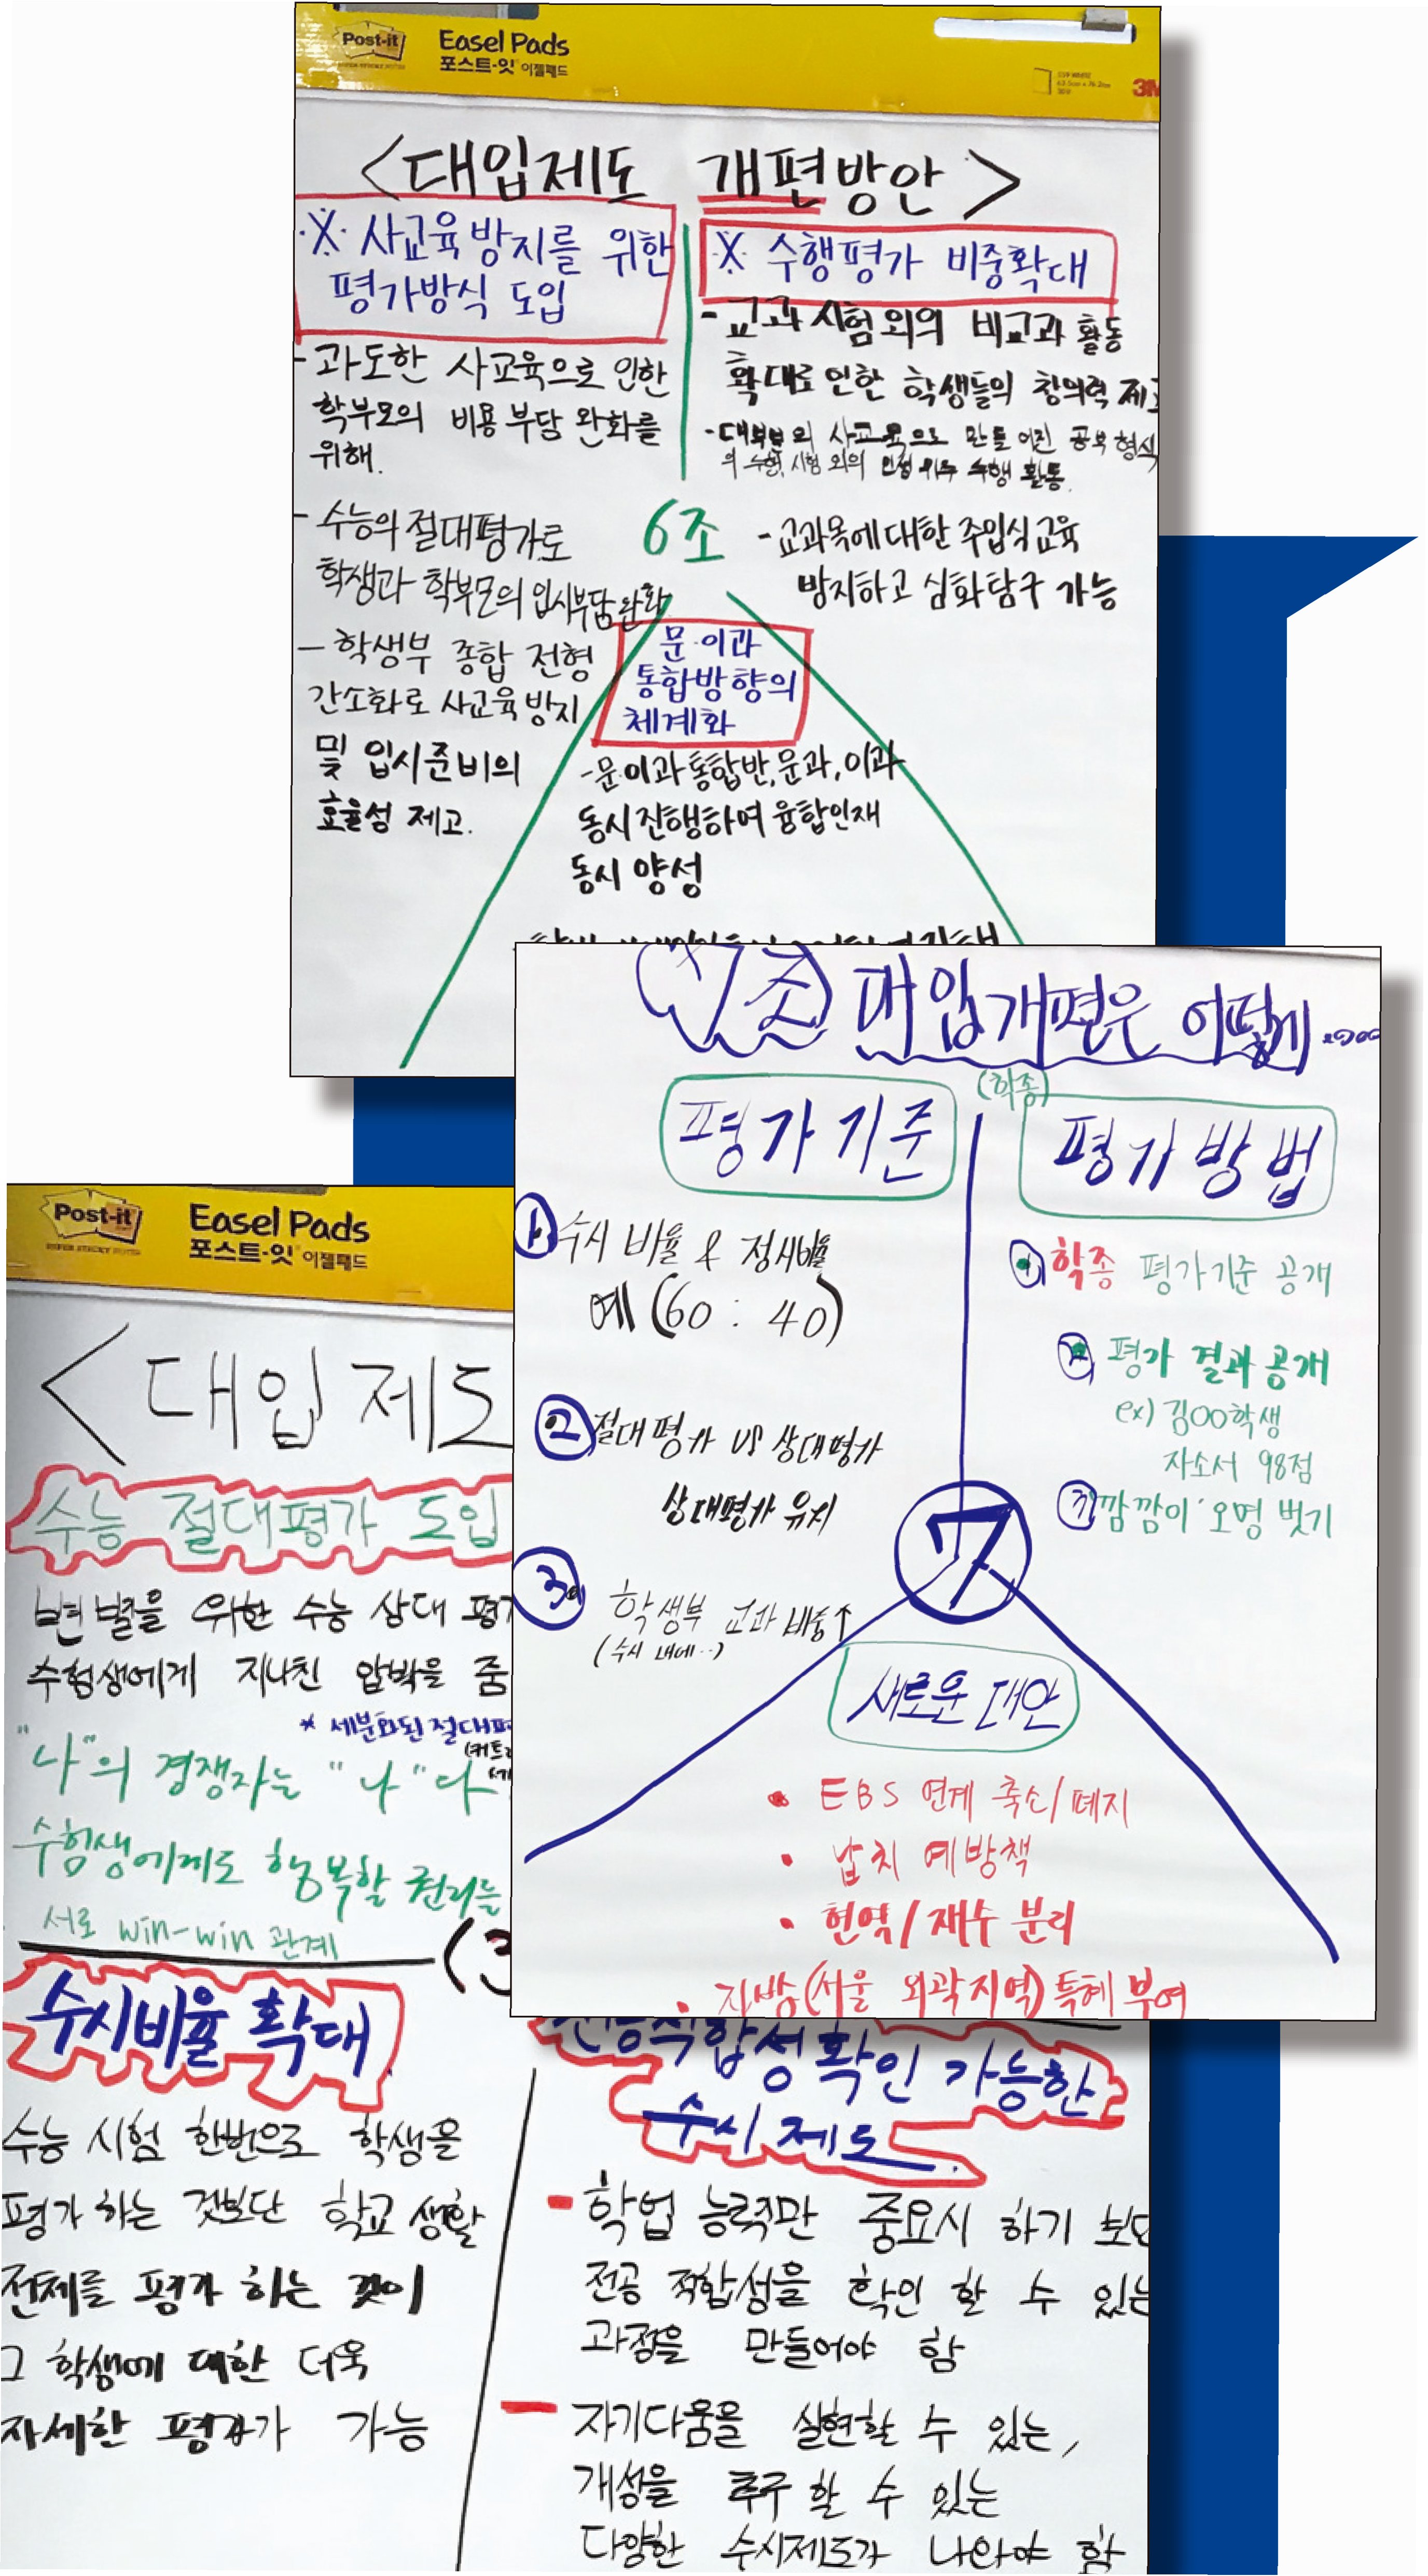 Post-it
Easel Pads
포스트-잇 이젤패드
3M
<대입제도 개편방안>
※ 사교육방지를 위한
평가방식 도입
- 과도한 사교육으로 인한
학부모의 비용 부담 완화를
위해.
- 수능의 절대평가로
학생과 학부모의 입시부담완화
- 학생부 종합 전형
간소화로 사교육방지
및 입시준비의
효율성 제고.
※ 수행평가 비중확대
- 교과 시험외의 비교과 활동
확대로 인한 학생들의 창의력
- 대부분의 사교육으로 만들어진 공부 형식
의 수험, 시험 외의 인성 위주 수행 활동.
- 교과목에대한 주입식교육
방지하고 심화탐구 가능
6조
문·이과
통합방향의
체계화
- 문·이과통합반, 문과, 이과
동시진행하여 융합인재
동시 양성
7조 대입개편은 어떻게
(학종)
평가기준
1. 수시 비율 & 정시비율
예 (60 : 40)
2. 절대평가 vs 상대평가
상대평가 유지
3. 학생부 교과 비중↑
(수시 내에..)
평가방법
1 학종 평가기준 공개
2 평가 결과 공개
ex) 김00학생
자소서 98점
3 '깜깜이' 오명 벗기
7
새로운 대안
• EBS 연계 축소/폐지
• 납치 예방책
• 현역/재수 분리
• 지방(서울 외곽지역) 특혜 부여
Post-it
Easel Pads
포스트-잇 이젤패드
<대입제도
수능 절대평가 도입
변별을 위한 수능 상대 평가
수험생에게 지나친 압박을 줌
* 세분화된 절대평
"나"의 경쟁자는 "나"다
수험생에게도 행복할 권리는
서로 win-win 관계
(3
수시비율 확대
수능 시험 한번으로 학생을
평가 하는 것보단 학교 생활
전체를 평가 하는 것이
그 학생에 대한 더욱
자세한 평가가 가능
전공적합성확인 가능한
수시 제도.
- 학업 능력만 중요시 하기 보단
전공 적합성을 확인 할 수 있는
과정을 만들어야 함
- 자기다움을 실현할 수 있는,
개성을 추구 할 수 있는
다양한 수시제도가 나와야 함